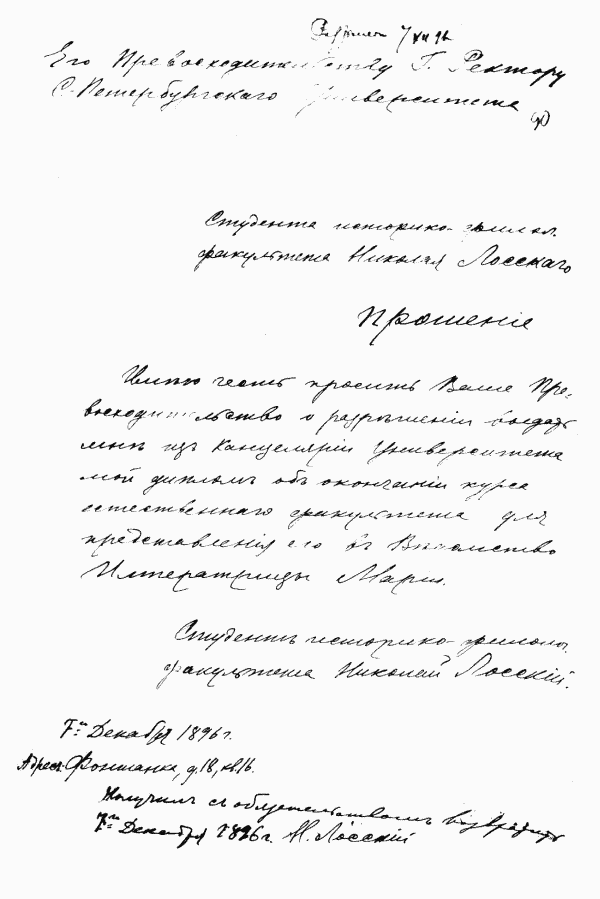 7 XII 96
Его Превосходительству Г. Ректору
С. Петербургскаго Университета
Студента историко-филол.
факультета Николая Лосскаго
Прошеніе
Имѣю честь просить Ваше Пре-
восходительство о разрѣшеніи выдать
мнѣ изъ Канцеляріи Университета
мой дипломъ объ окончаніи курса
естественнаго факультета для
представленія его въ Вѣдомство
Императрицы Маріи.
Студентъ историко-филолог.
факультета Николай Лосскій.
7го Декабря 1896 г.
Адресъ: Фонтанка, д. 18, кв. 16.
Получилъ съ обязательствомъ возвратить
7го Декабря 1896 г. Н. Лосскій